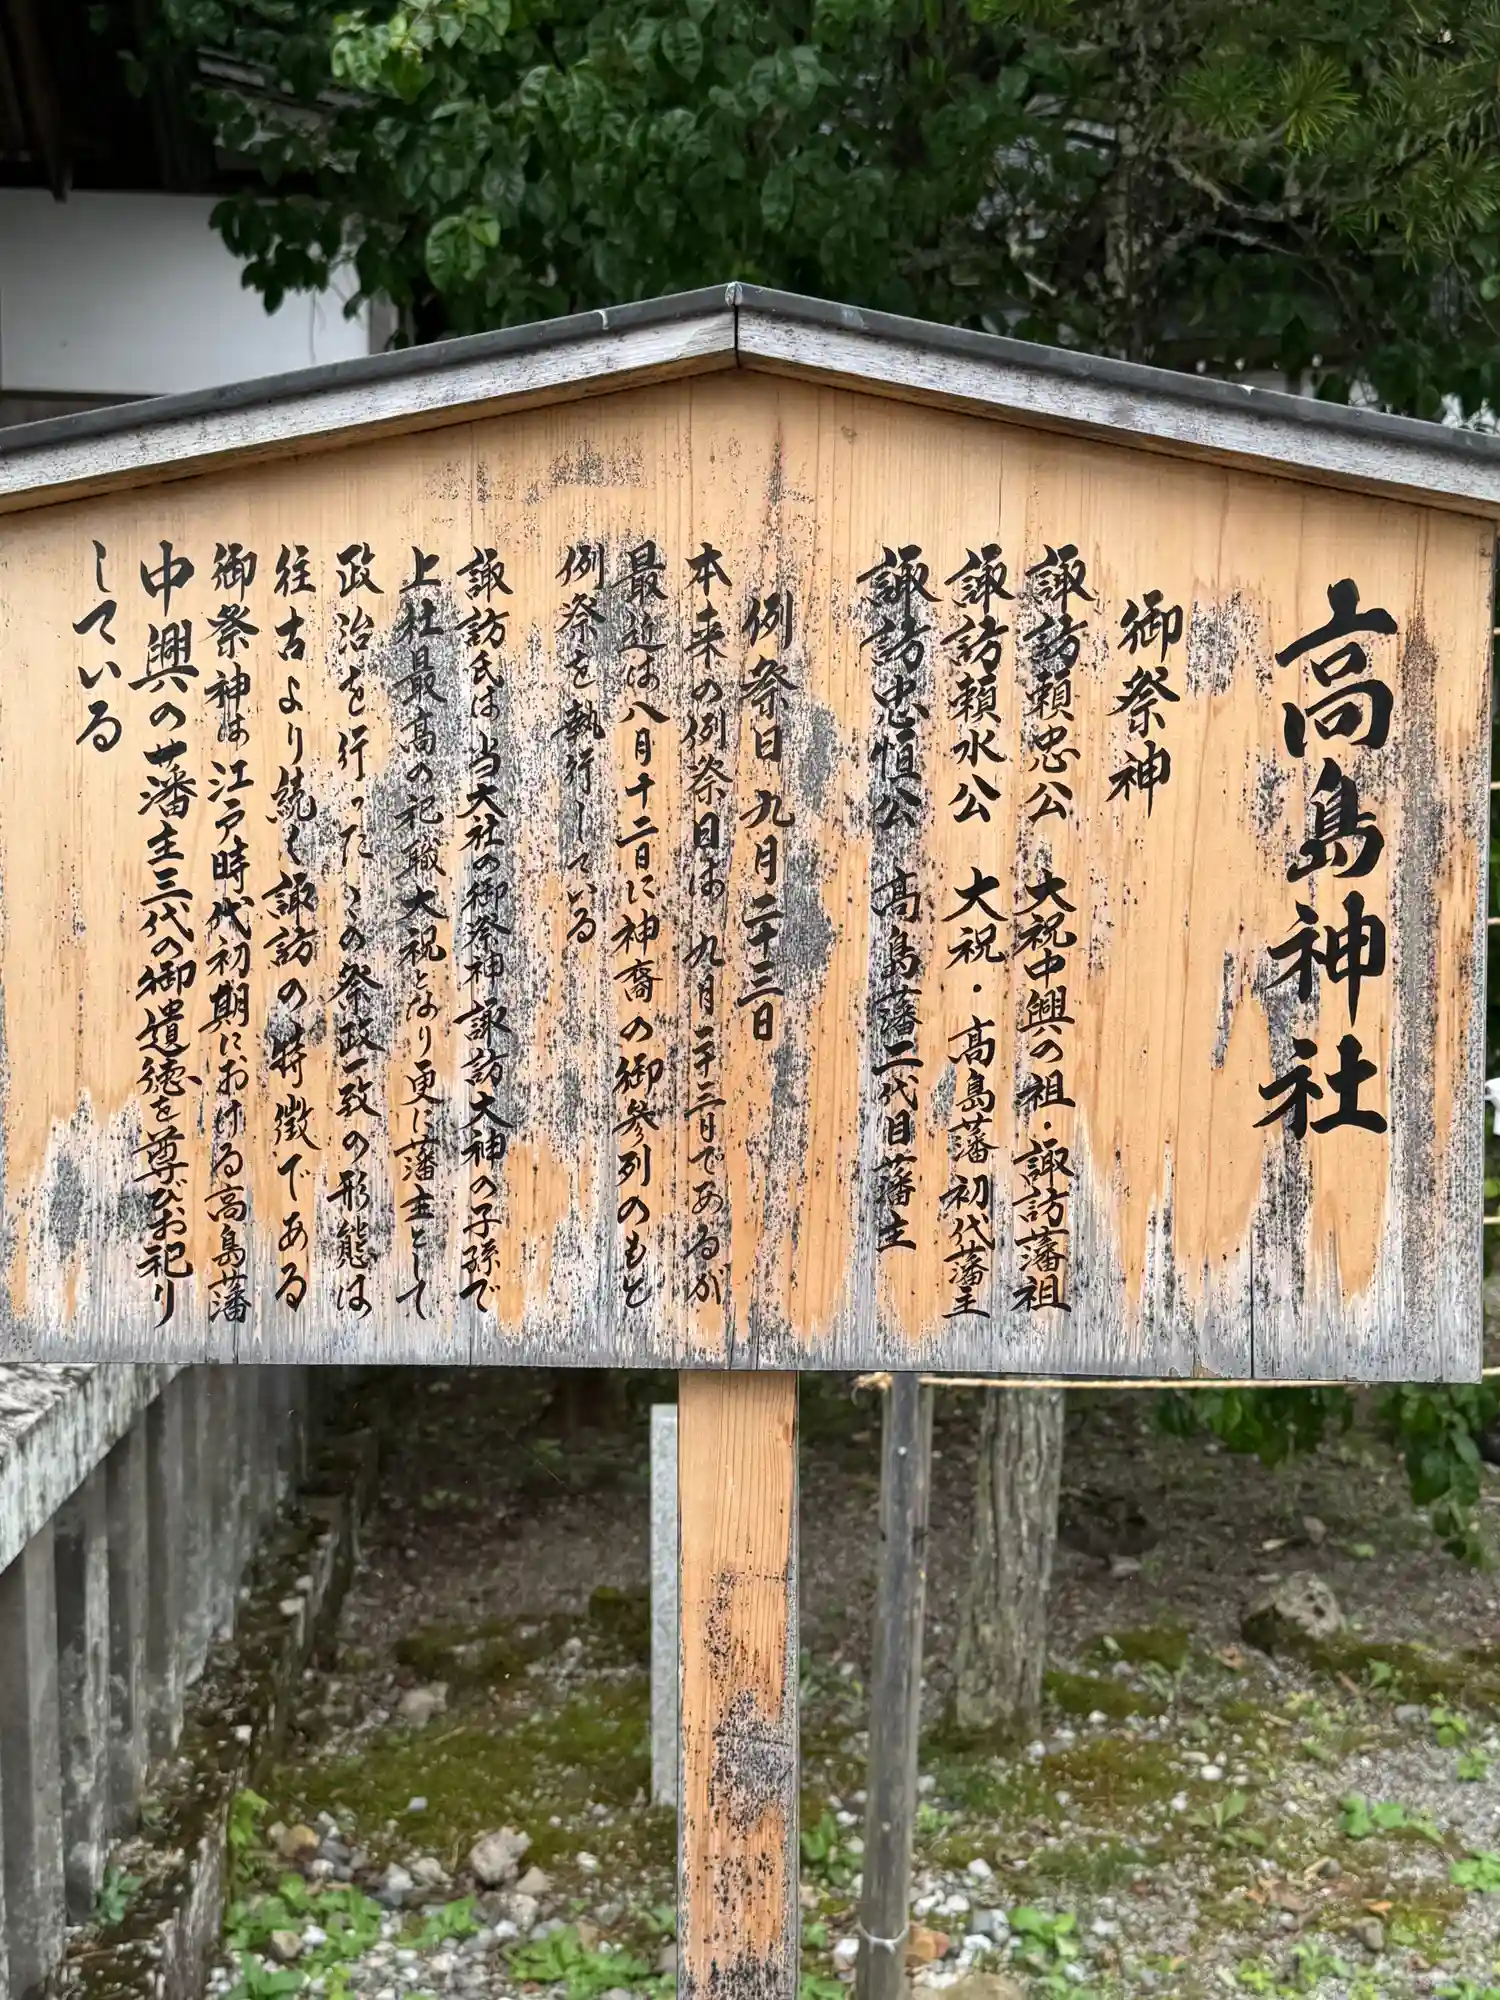 高島神社
御祭神
諏訪頼忠公 大祝中興の祖・諏訪藩祖
諏訪頼水公 大祝・高島藩初代藩主
諏訪忠恒公 高島藩二代目藩主
例祭日 九月二十三日
本来の例祭日は九月二十三日であるが
最近は八月十二日に神裔の御参列のもと
例祭を執行している
諏訪氏は当大社の御祭神諏訪大神の子孫で
上社最高の祀職大祝となり更に藩主として
政治を行ったゝの祭政一致の形態は
往古より続く諏訪の特徴である
御祭神は江戸時代初期における高島藩
中興の藩主三代の御遺徳を尊びお祀り
している